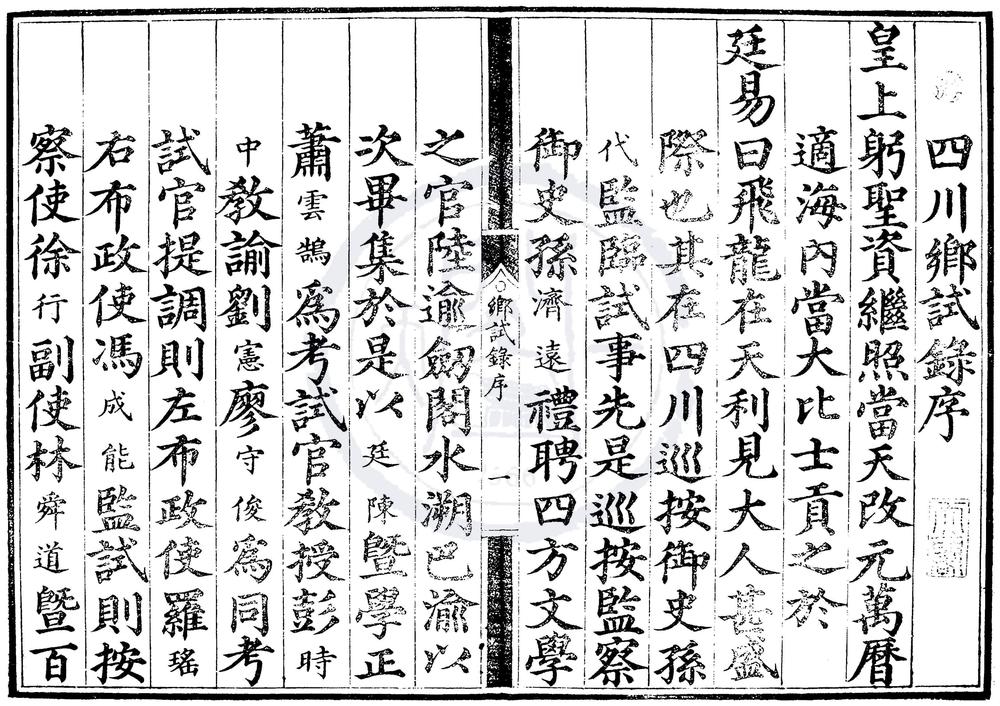 四川鄉試錄序
皇上躬聖資繼照當天改元萬曆
適海內當大比士貢之於
廷易曰飛龍在天利見大人甚盛
際也其在四川巡按御史孫
代監臨試事先是巡按監察
御史孫濟遠禮聘四方文學
鄉試錄序
一
之官陸逾劒閣水溯巴渝以
次畢集於是以廷陳曁學正
蕭雲鵠為考試官教授彭時
中教諭劉憲廖守俊為同考
試官提調則左布政使羅瑤
右布政使馮成能監試則按
察使徐行副使林舜道曁百